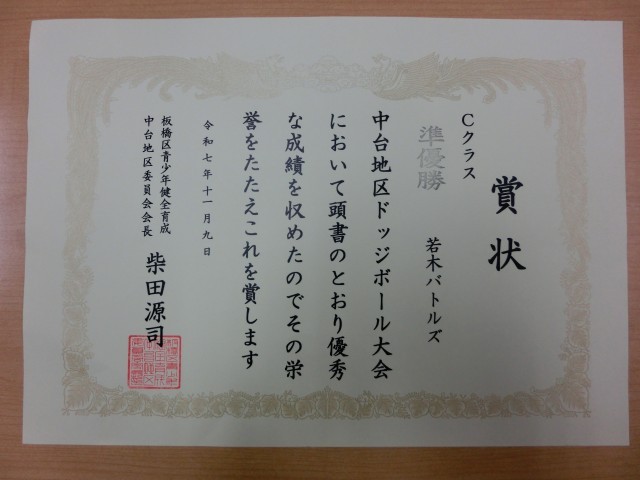 賞状
Cクラス
準優勝
若木バトルズ
中台地区ドッジボール大会
において頭書のとおり優秀
な成績を収めたのでその栄
誉をたたえこれを賞します
令和七年十一月九日
板橋区青少年健全育成
中台地区委員会会長
柴田源司